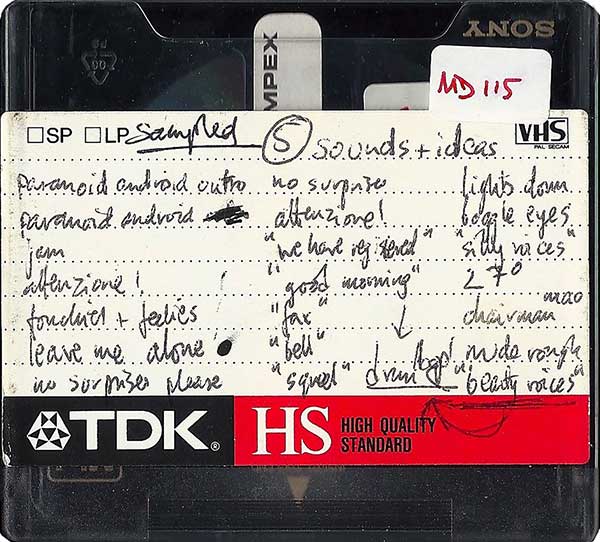 SONY
MPEX
MD 115
SP LP Sampled
5 sounds + ideas
VHS
PAL SECAM
paranoid android outro
paranoid android
jam
attenzione!
+
leave me alone!
no surprises please
no surprises
attenzione!
"we have registered"
"good morning"
"fax"
"bell"
drum loop!
lights down
boggle eyes
"silly voices"
270
chairman mao
nude rough
"beauty voices"
TDK®
HS HIGH QUALITY
STANDARD